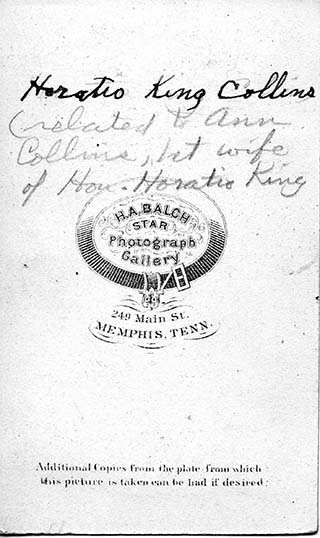 Horatio King Collins
(related to Ann
Collins, 1st wife
of Hon. Horatio King
H.A. BALCH
STAR
Photograph
Gallery
249 Main St.
MEMPHIS, TENN.
Additional Copies from the plate from which
this picture is taken can be had if desired.